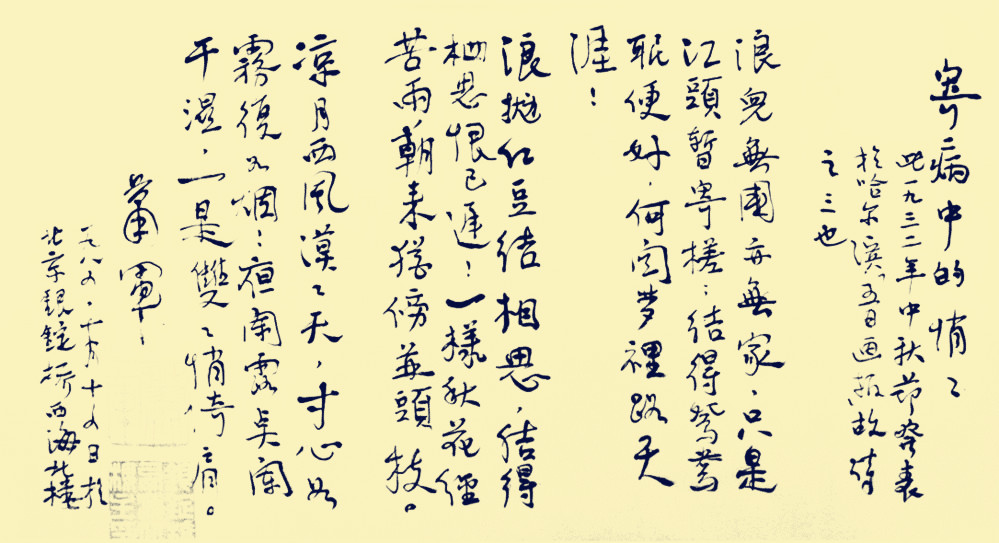 寄病中的悄悄
此一九三二年中秋節發表
於哈尔滨五日画报故詩
之三也
浪兒無國亦無家，只是
江頭暫寄槎；結得鴛鴦
眠便好，何関梦裡路天
涯！
浪抛红豆结相思，结得
相思恨已遲！一様秋花經
苦雨，朝来猶傍並頭枝。
凉月西風漠漠天，寸心如
霧復如烟；夜闌露點闌
干濕，一是雙雙悄倚肩。
蕭軍
一九八五．十月十五日於
北京銀錠桥西海北楼